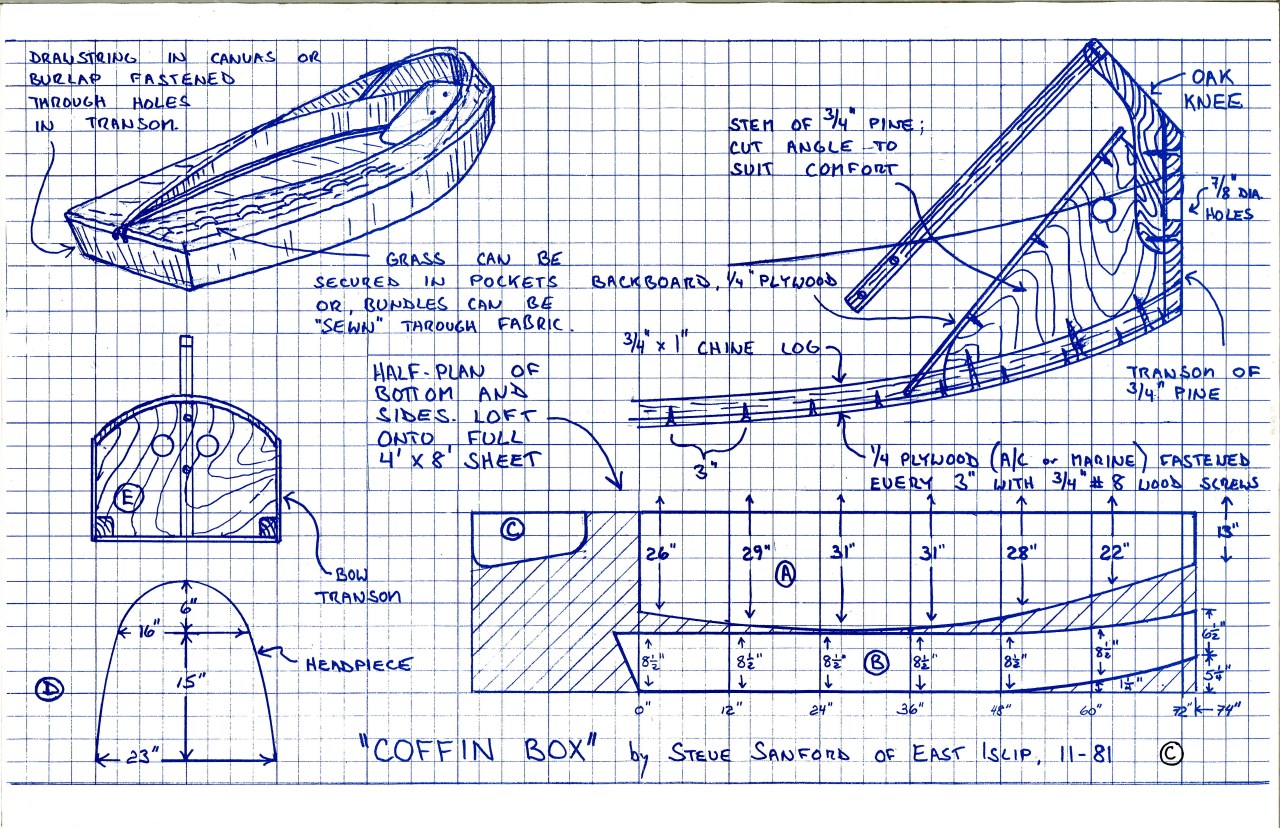 DRAWSTRING IN CANVAS OR
BURLAP FASTENED
THROUGH HOLES
IN TRANSOM.
GRASS CAN BE
SECURED IN POCKETS
OR, BUNDLES CAN BE
"SEWN" THROUGH FABRIC.
STEM OF 3/4" PINE;
CUT ANGLE TO
SUIT COMFORT
OAK
KNEE
7/8" DIA.
HOLES
BACKBOARD, 1/4" PLYWOOD
3/4" x 1" CHINE LOG
TRANSOM OF
3/4" PINE
3"
1/4 PLYWOOD (A/C or MARINE) FASTENED
EVERY 3" WITH 3/4" #8 WOOD SCREWS
HALF-PLAN OF
BOTTOM AND
SIDES. LOFT
ONTO FULL
4' X 8' SHEET
E
BOW
TRANSOM
6"
16"
15"
HEADPIECE
D
23"
C
26" 29" 31" 31" 28" 22" 13"
A
8 1/2" 8 1/2" 8 1/2" B 8 1/2" 8 1/2" 8 1/2" 6 1/2"
1 1/4" 5 1/4"
0" 12" 24" 36" 48" 60" 72" 74"
"COFFIN BOX" by STEVE SANFORD OF EAST ISLIP, 11-81 ©